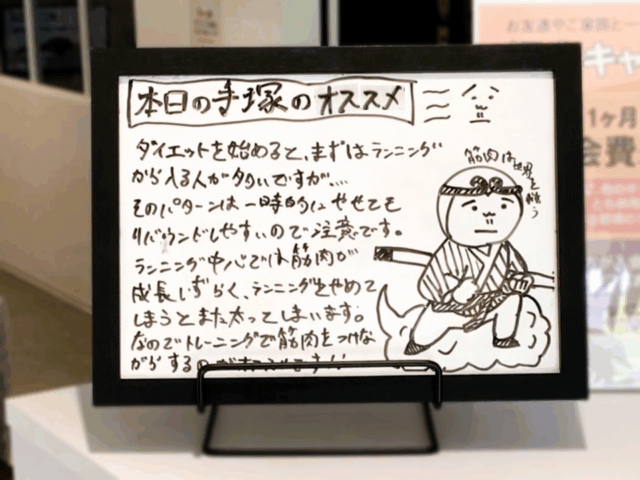 本日の手塚のオススメ
ダイエットを始めると、まずはランニング
から入る人が多いですが、...
そのパターンは一時的にやせても
リバウンドしやすいので注意です。
ランニング中心では筋肉が
成長しずらく、ランニングをやめて
しまうとまた太ってしまいます。
なのでトレーニングで筋肉をつけな
がらするのがオススメです!!
筋肉は世界を救う
お友達やご家族と一
キャ
1ヶ月
会費